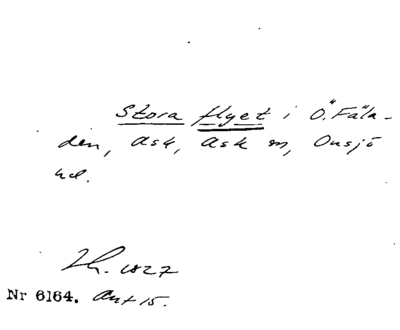 Stora flyet i Ö. Fäla-
den, Ask, Ask sn, Onsjö
hd.
Lh. 1827
Nr 6164. Ant 15.